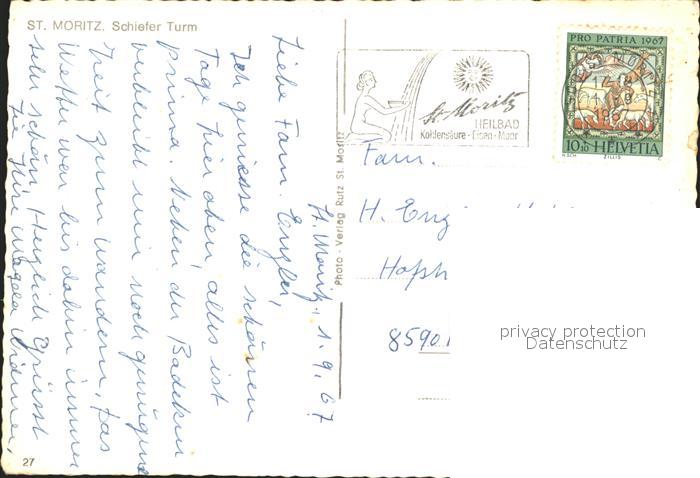 ST. MORITZ. Schiefer Turm
St. Moritz, 1. 9. 67
Liebe Fam. Engler,
Ich geniesse die schönen
Tage hier oben, alles ist
prima. Neben der Badekur
verbleibt mir noch genügend
Zeit zum Wandern, das
Wetter war bis dahin immer
sehr schön. Herzlich grüsst
Sie Ihre
27
Photo-Verlag Rutz St. Moritz
St. Moritz
HEILBAD
Kohlensäure-Eisen-Moor
PRO PATRIA 1967
10+10 HELVETIA
H.SCH. ZILLIS C
Fam.
H. Eng
Hofstr
8590
privacy protection
Datenschutz